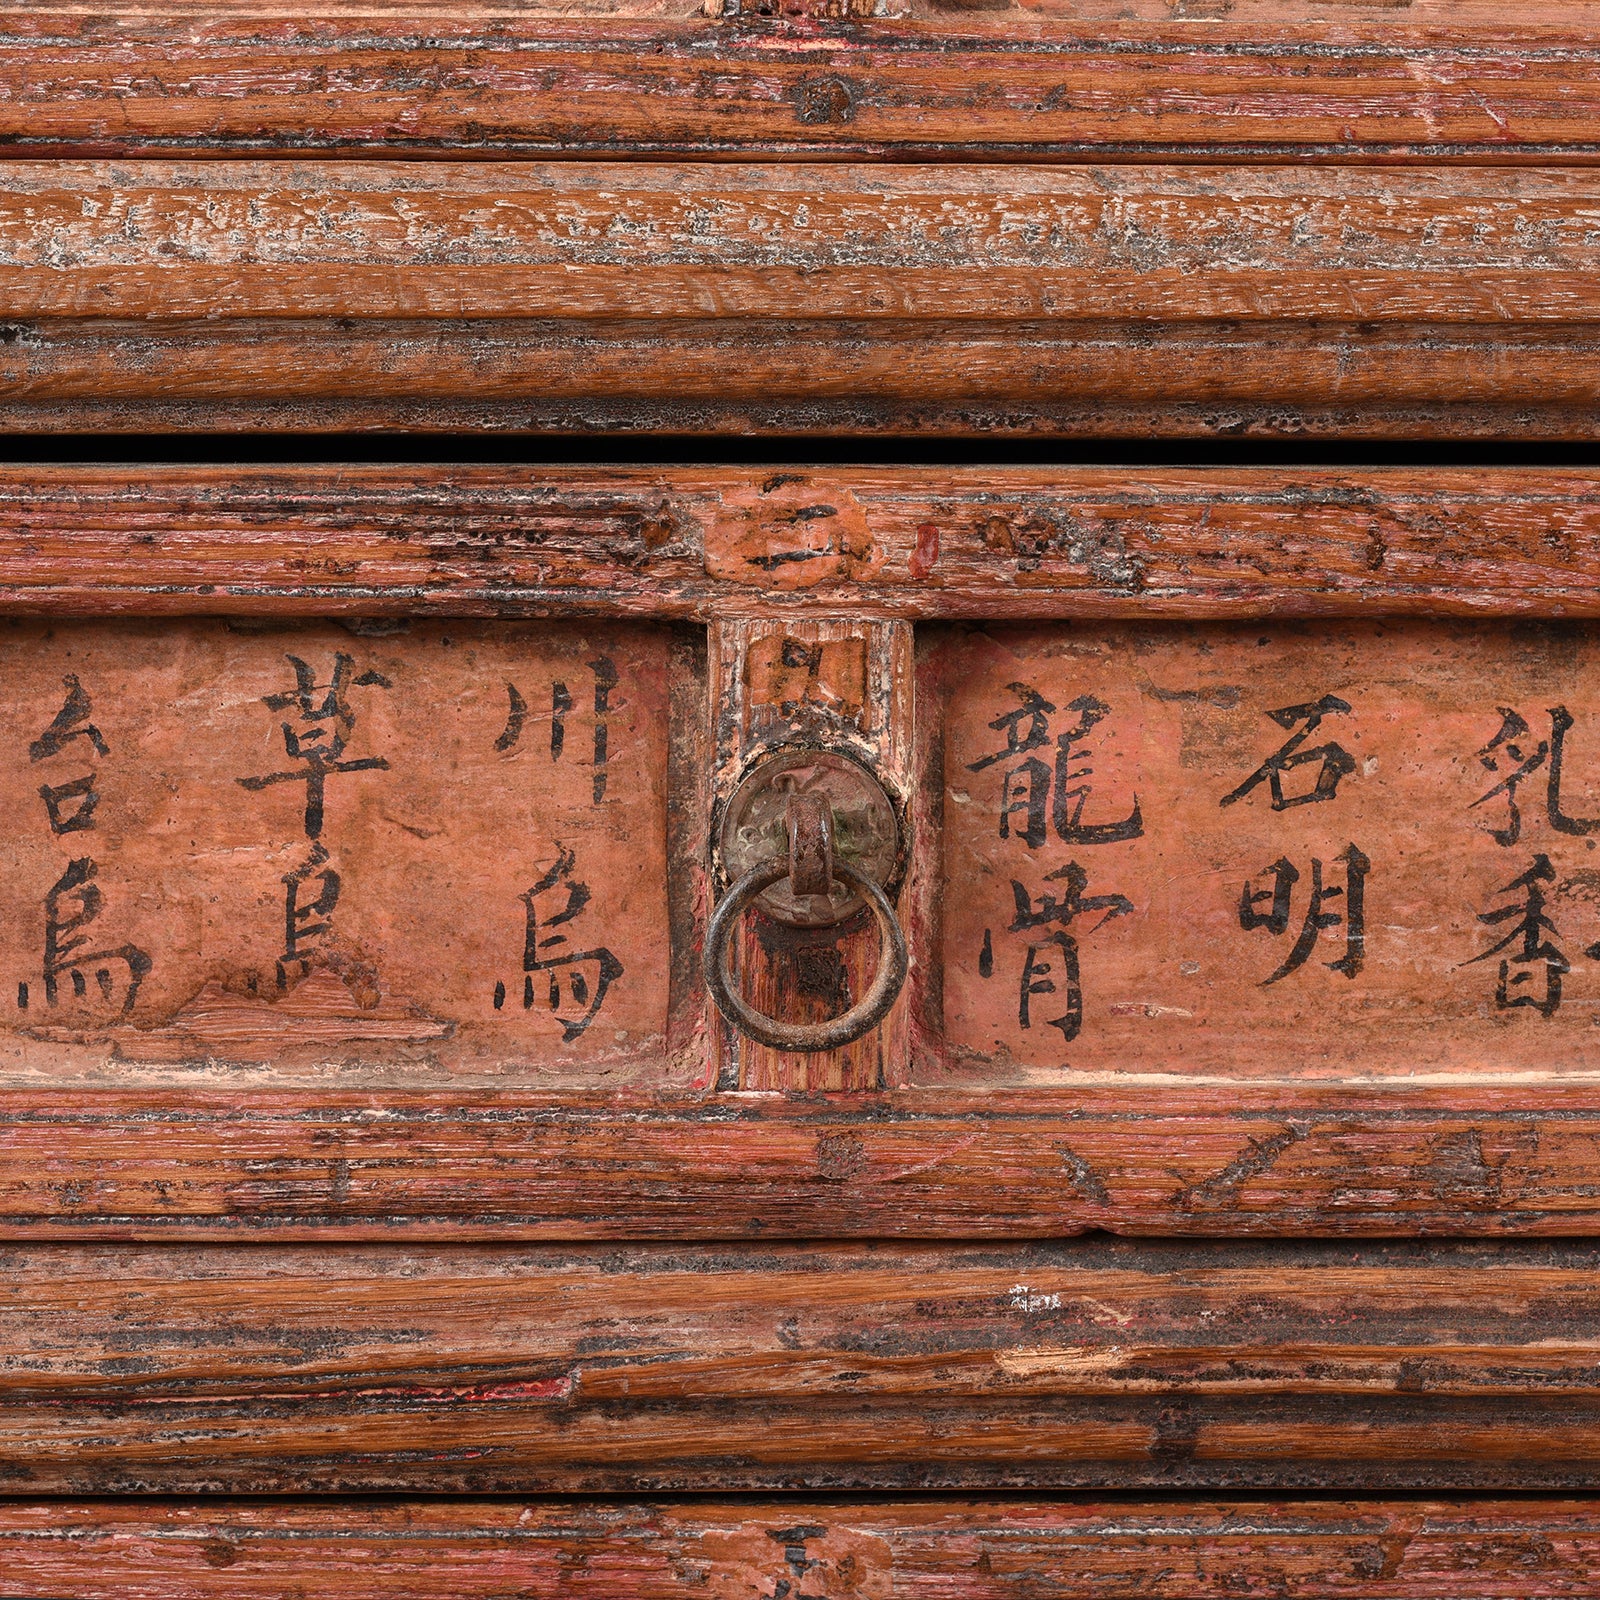 三
乳香
石明
龍骨
川烏
草烏
台烏